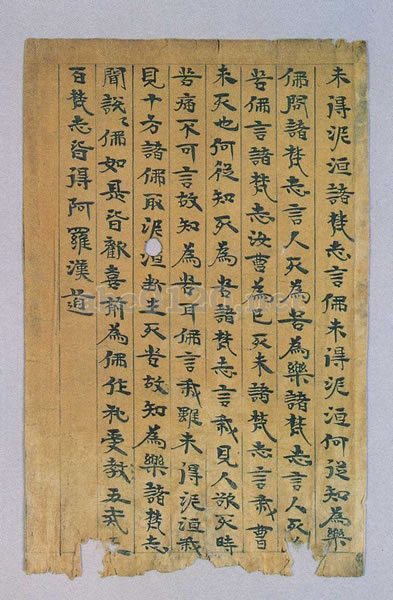 未得泥洹諸梵志言佛未得泥洹何從知為樂
佛問諸梵志言人死為苦為樂諸梵志言人死
苦佛言諸梵志汝曹為已死未諸梵志言我曹
未死也何從知死為苦諸梵志言我見人欲死時
苦痛不可言故知為苦耳佛言我雖未得泥洹我
見十方諸佛取泥洹生死苦故知為樂諸梵志
聞說〻佛如是皆歡喜前為佛作礼受教五戒
百梵志皆得阿羅漢道